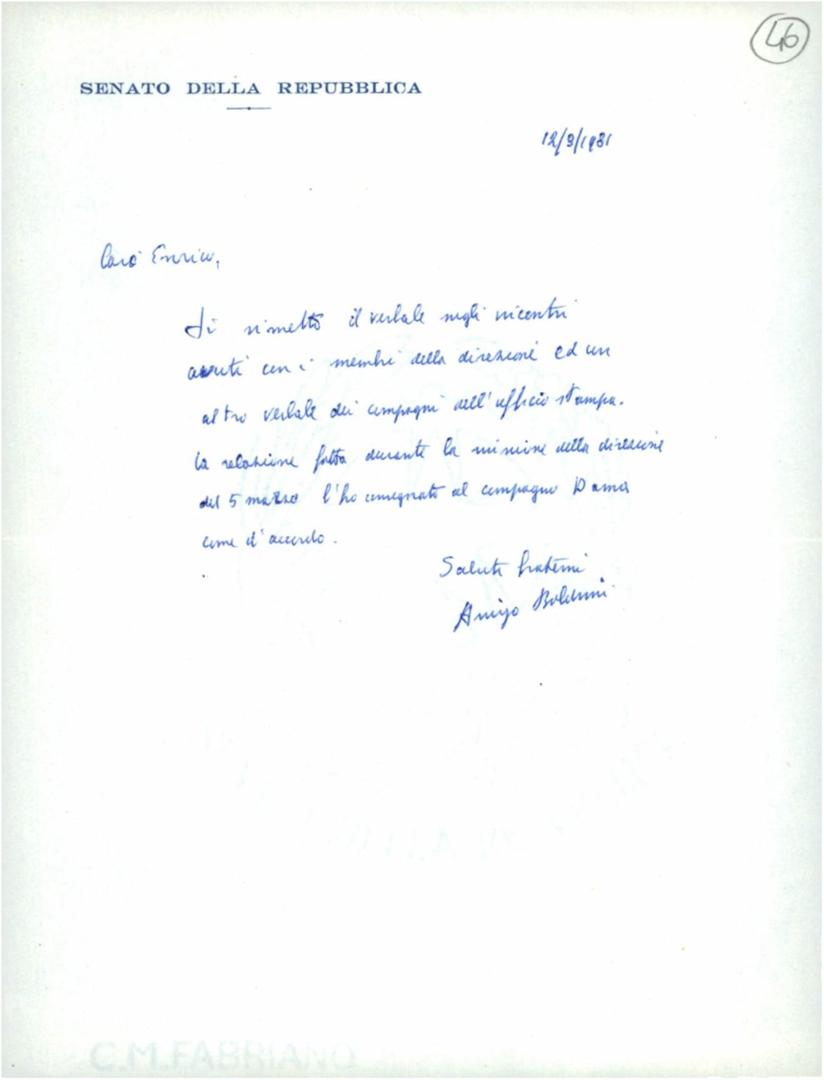 46
SENATO DELLA REPUBBLICA
12/3/1981
Caro Enrico,
Ti rimetto il verbale sugli incontri
avuti con i membri della direzione ed un
altro verbale dei compagni dell'ufficio stampa.
La relazione fatta durante la riunione della direzione
del 5 marzo l'ho consegnato al compagno Dama
come d'accordo.
Saluti fraterni
Arrigo Boldrini
C.M.FABRIANO